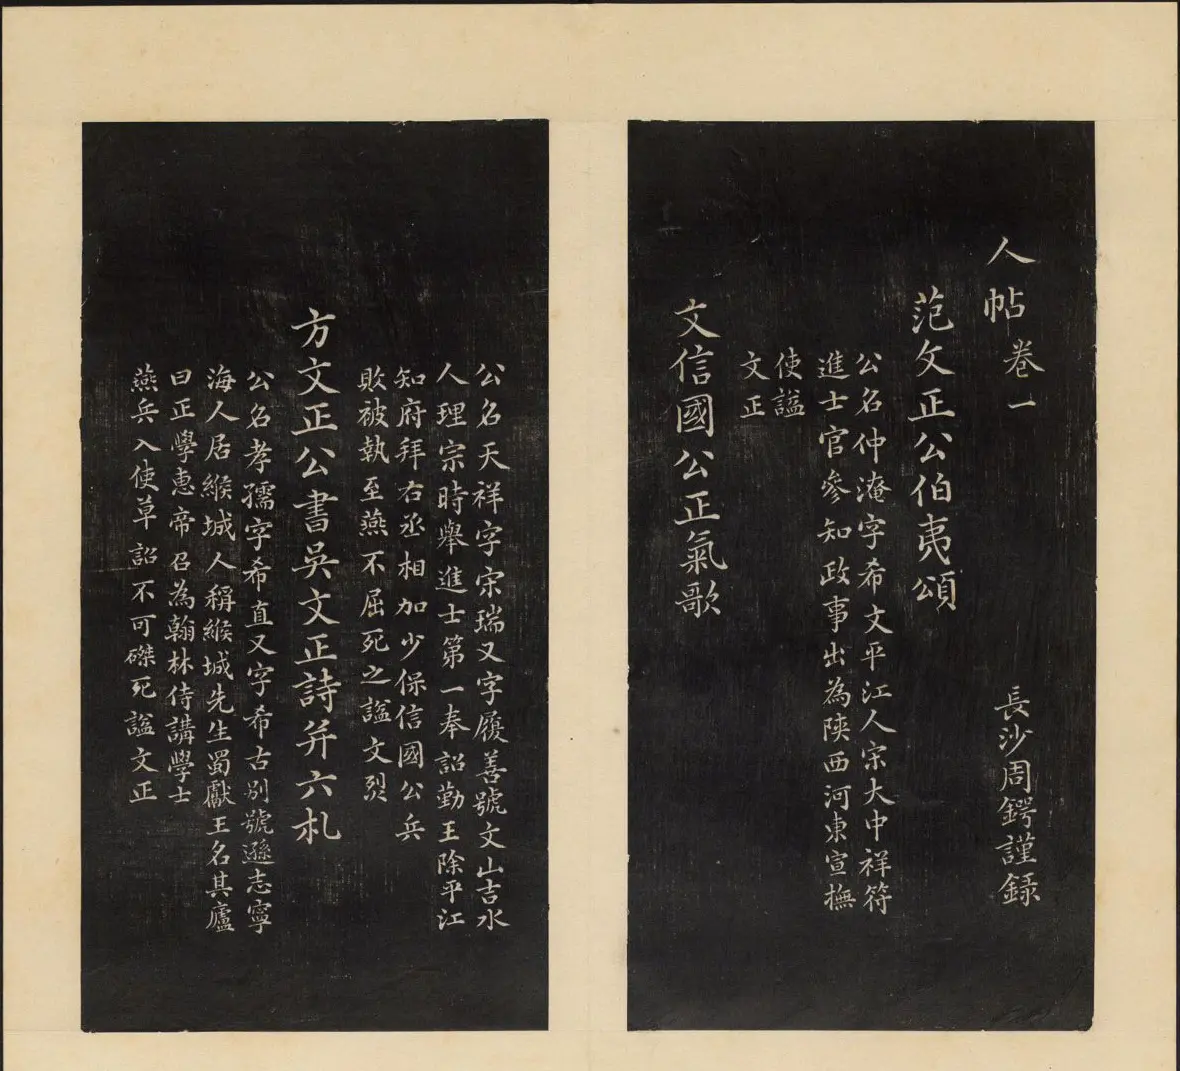 人帖卷一
長沙周鍔謹録
范文正公伯夷頌
公名仲淹字希文平江人宋大中祥符
進士官參知政事出為陝西河東宣撫
使諡
文正
文信國公正氣歌
公名天祥字宋瑞又字履善號文山吉水
人理宗時舉進士第一奉詔勤王除平江
知府拜右丞相加少保信國公兵
敗被執至燕不屈死之諡文烈
方文正公書吳文正詩并六札
公名孝孺字希直又字希古別號遜志寧
海人居緱城人稱緱城先生蜀獻王名其廬
曰正學惠帝召為翰林侍講學士
燕兵入使草詔不可磔死諡文正